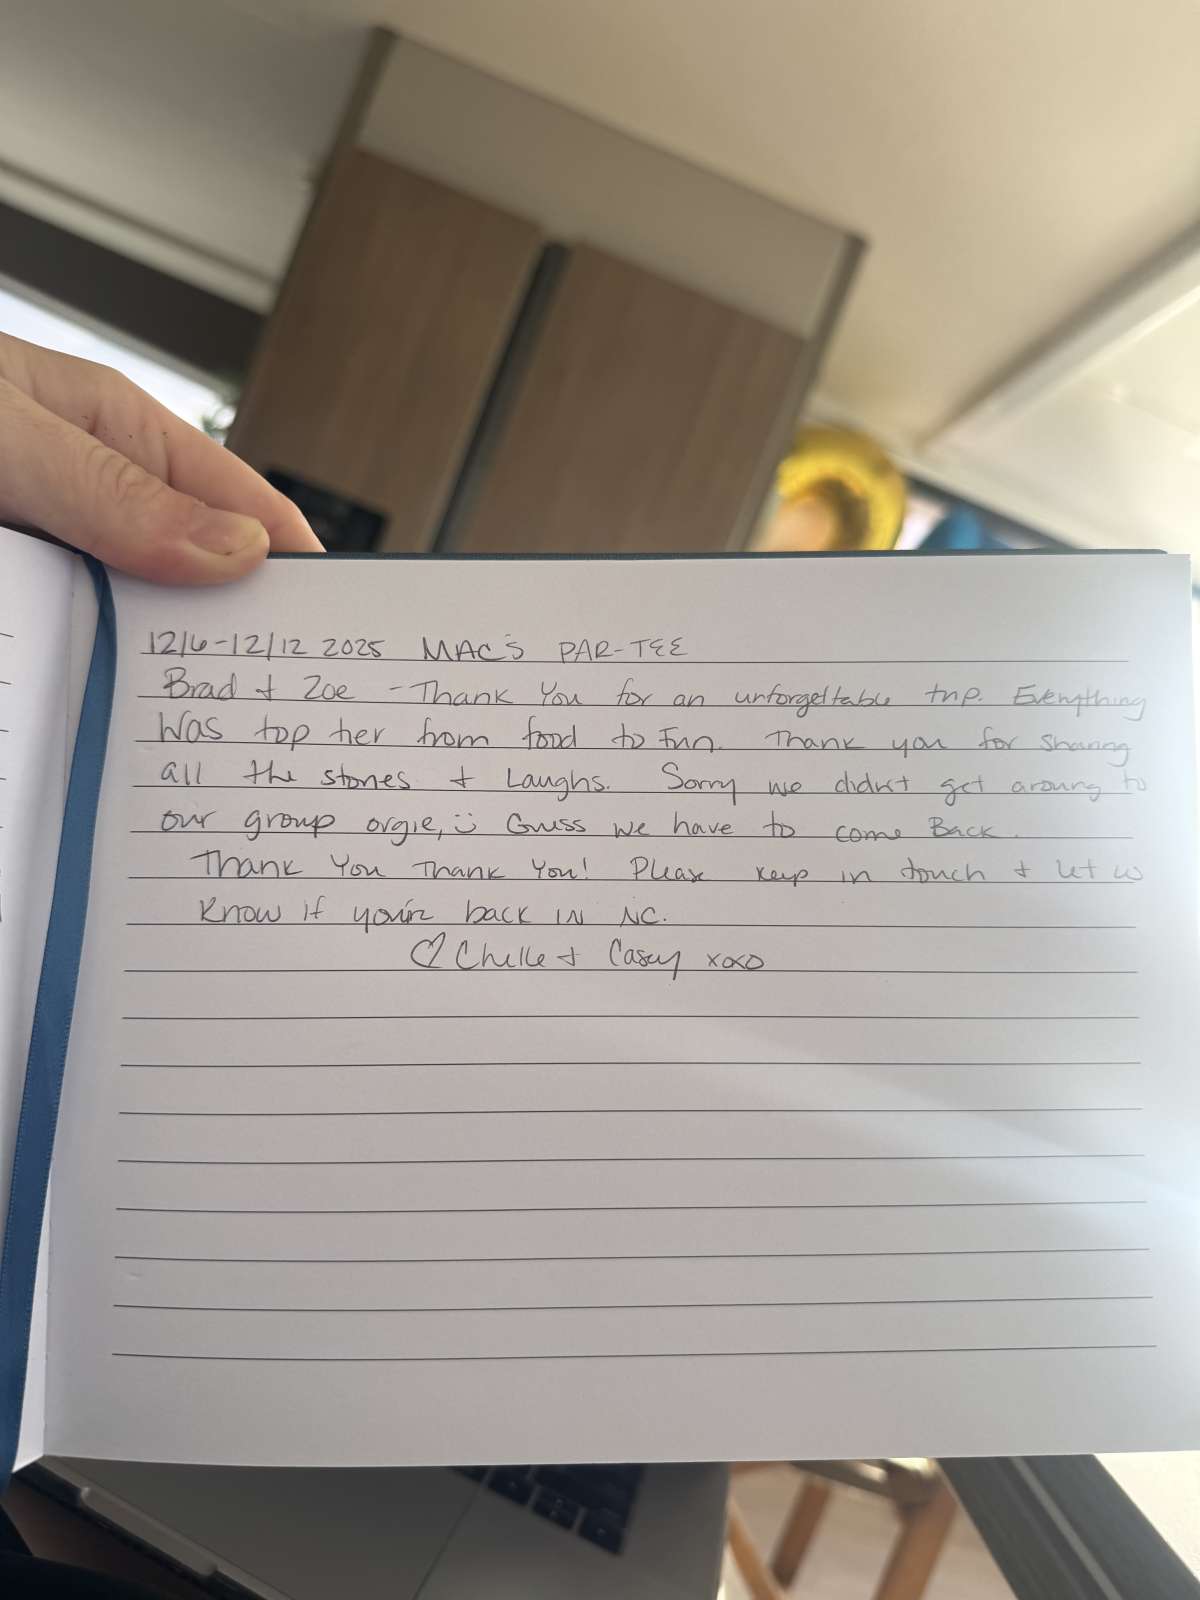 12/6-12/12 2025 MAC'S PAR-TEE
Brad + Zoe - Thank You for an unforgettable trip. Everything
Was top tier from food to Fun. Thank you for sharing
all the stories + Laughs. Sorry we didn't get aroung to
our group orgie, :) Guess we have to come Back.
Thank You Thank You! Please keep in touch + let us
Know if you're back IN NC.
♡ Chelle + Casey xoxo